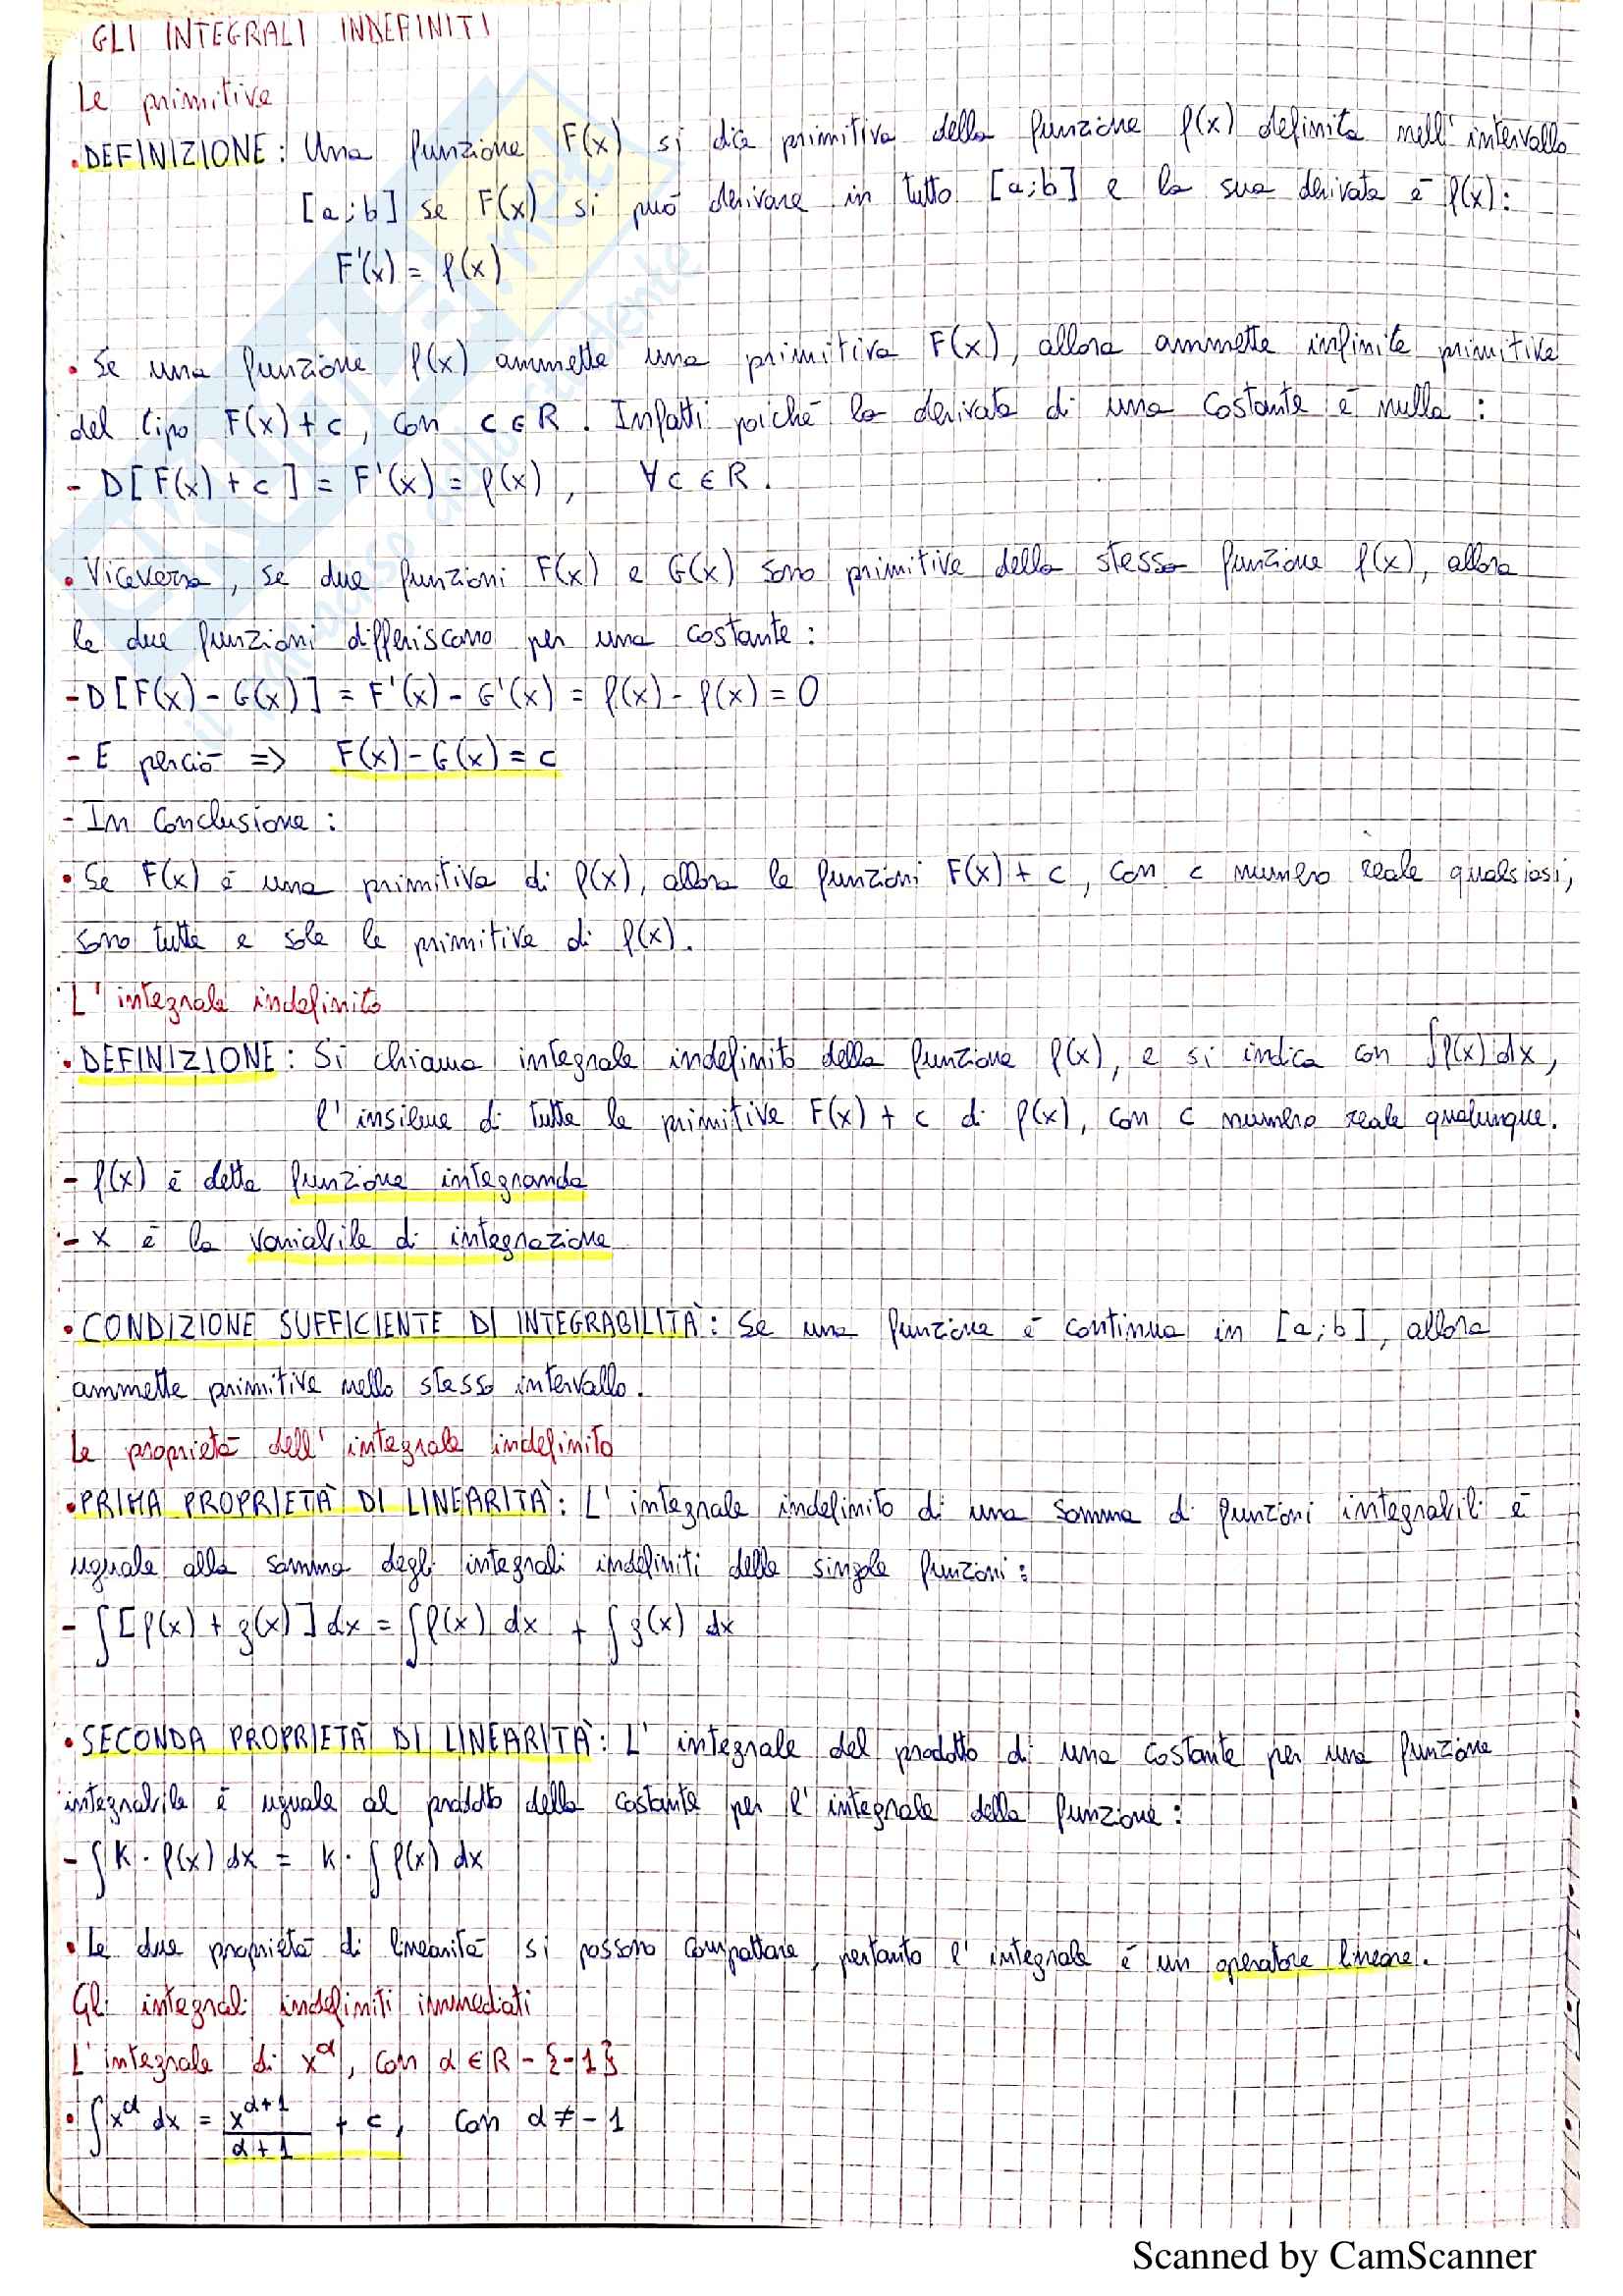 GLI INTEGRALI INDEFINITI
Le primitive
• DEFINIZIONE: Una funzione F(x) si dice primitiva della funzione f(x) definita nell'intervallo
[a;b] se F(x) si può derivare in tutto [a;b] e la sua derivata è f(x):
F'(x) = f(x)
• Se una funzione f(x) ammette una primitiva F(x), allora ammette infinite primitive
del tipo F(x) + c, con c ∈ R. Infatti poiché la derivata di una costante è nulla:
- D[F(x) + c] = F'(x) = f(x), ∀ c ∈ R.
• Viceversa, se due funzioni F(x) e G(x) sono primitive della stessa funzione f(x), allora
le due funzioni differiscono per una costante:
- D[F(x) - G(x)] = F'(x) - G'(x) = f(x) - f(x) = 0
- E perciò => F(x) - G(x) = c
- In conclusione:
• Se F(x) è una primitiva di f(x), allora le funzioni F(x) + c, con c numero reale qualsiasi,
sono tutte e sole le primitive di f(x).
L'integrale indefinito
• DEFINIZIONE: Si chiama integrale indefinito della funzione f(x), e si indica con ∫f(x) dx,
l'insieme di tutte le primitive F(x) + c di f(x), con c numero reale qualunque.
- f(x) è detta funzione integranda
- x è la variabile di integrazione
• CONDIZIONE SUFFICIENTE DI INTEGRABILITÀ: Se una funzione è continua in [a;b], allora
ammette primitive nello stesso intervallo.
Le proprietà dell'integrale indefinito
• PRIMA PROPRIETÀ DI LINEARITÀ: L'integrale indefinito di una somma di funzioni integrabili è
uguale alla somma degli integrali indefiniti delle singole funzioni:
- ∫[f(x) + g(x)] dx = ∫f(x) dx + ∫g(x) dx
• SECONDA PROPRIETÀ DI LINEARITÀ: L'integrale del prodotto di una costante per una funzione
integrabile è uguale al prodotto della costante per l'integrale della funzione:
- ∫K · f(x) dx = K · ∫f(x) dx
• Le due proprietà di linearità si possono compattare, pertanto l'integrale è un operatore lineare.
Gli integrali indefiniti immediati
L'integrale di x^α, con α ∈ R - {-1}
• ∫x^α dx = x^(α+1)/(α+1) + c, con α ≠ -1
Scanned by CamScanner